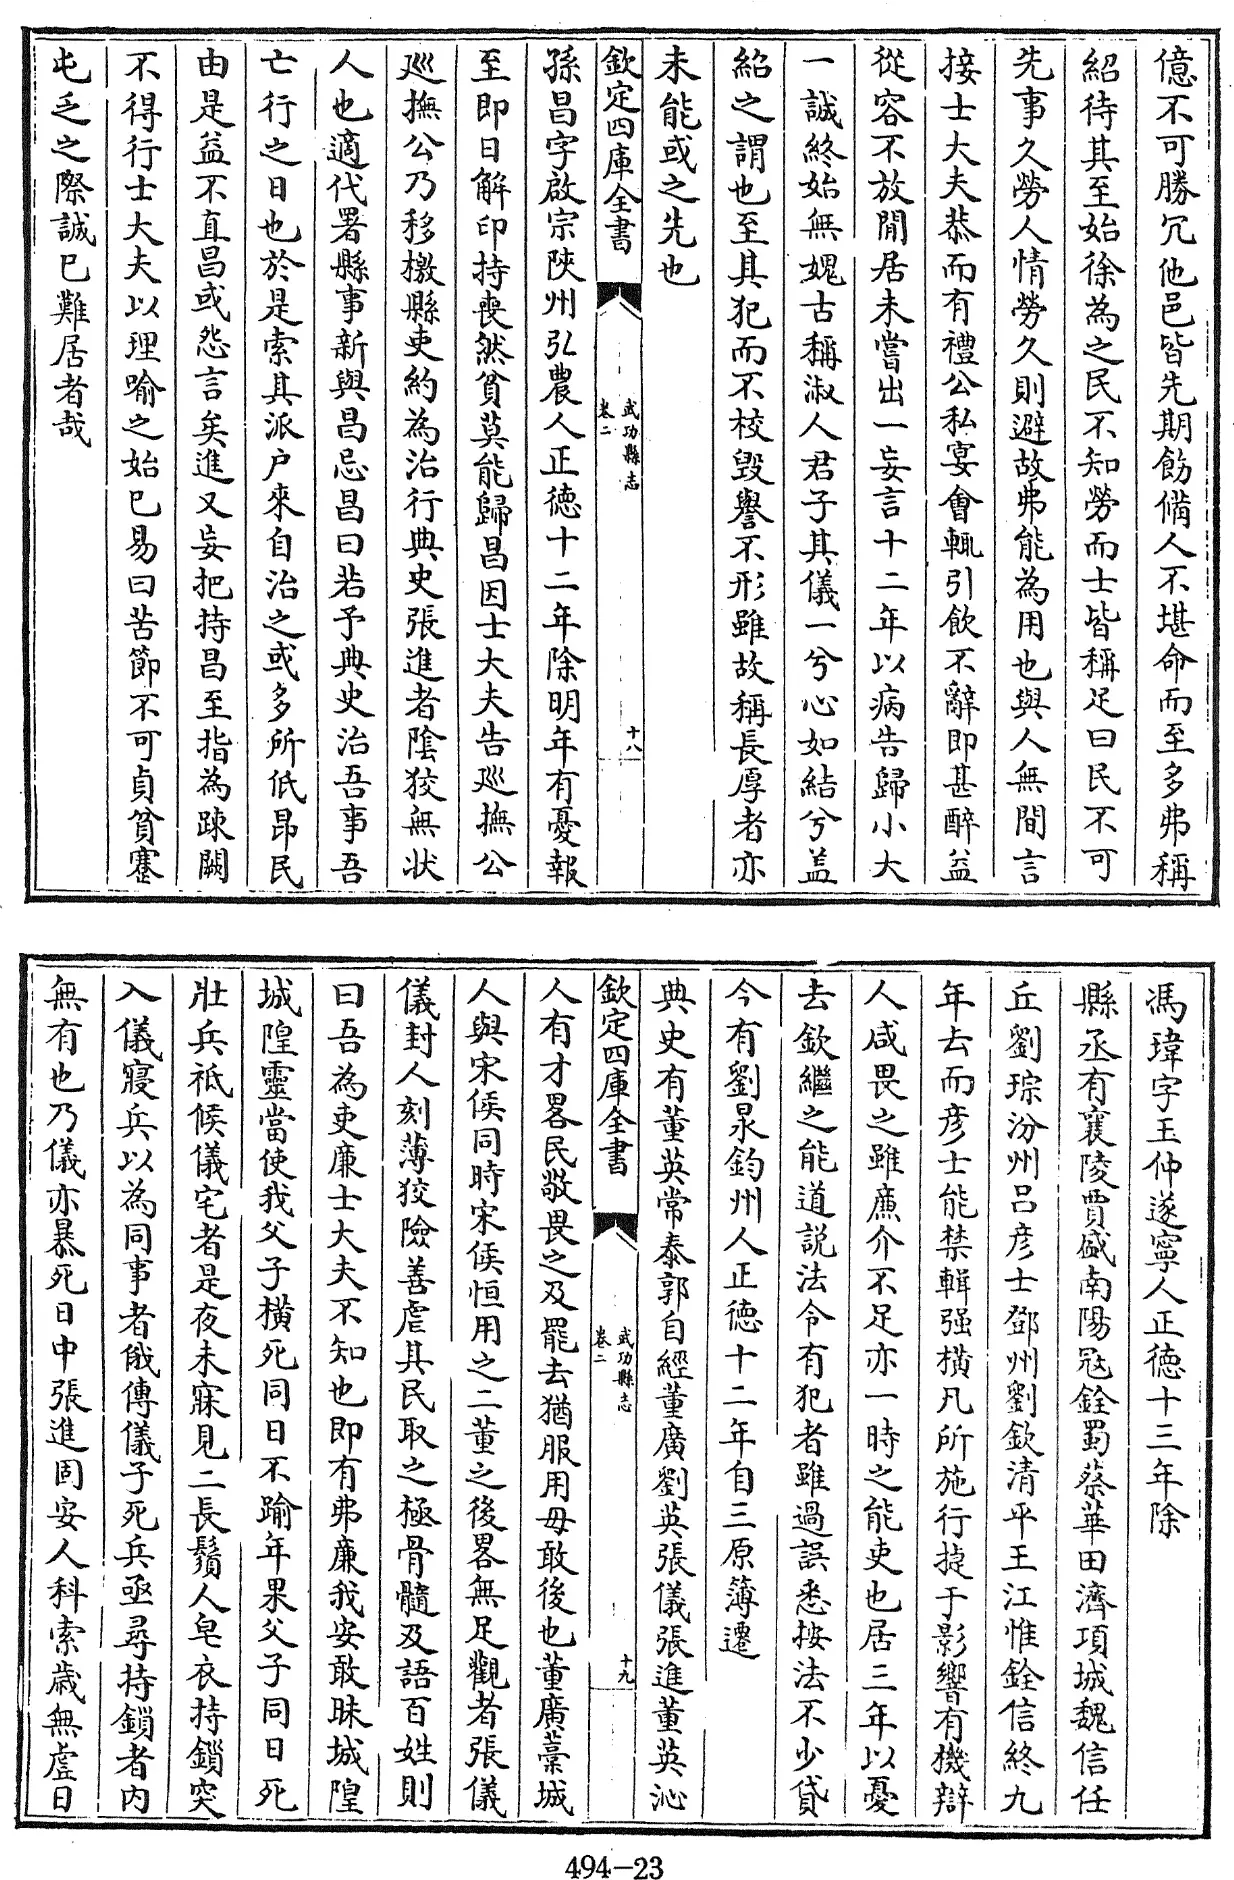 億不可勝冗他邑皆先期飭備人不堪命而至多弗稱
紹待其至始徐為之民不知勞而士皆稱足曰民不可
先事久勞人情勞久則避故弗能為用也與人無間言
接士大夫恭而有禮公私宴會輒引飲不辭即甚醉益
從容不放閒居未嘗出一妄言十二年以病告歸小大
一誠終始無媿古稱淑人君子其儀一兮心如結兮盖
紹之謂也至其犯而不校毀譽不形雖故稱長厚者亦
未能或之先也
欽定四庫全書
武功縣志
卷二
十八
孫昌字啟宗陝州弘農人正德十二年除明年有憂報
至即日解印持喪然貧莫能歸昌因士大夫告巡撫公
巡撫公乃移檄縣吏約為治行典史張進者陰狡無状
人也適代署縣事新與昌忌昌曰若予典史治吾事吾
亡行之日也於是索其派户來自治之或多所低昂民
由是益不直昌或怨言矣進又妄把持昌至指為踈闕
不得行士大夫以理喻之始已易曰苦節不可貞貧蹇
屯乏之際誠已難居者哉
馮瑋字玉仲遂寧人正德十三年除
縣丞有襄陵賈盛南陽冦銓蜀蔡華田濟項城魏信任
丘劉琮汾州吕彦士鄧州劉欽清平王江惟銓信終九
年去而彦士能禁輯强横凡所施行捷于影響有機辯
人咸畏之雖廉介不足亦一時之能吏也居三年以憂
去欽繼之能道説法令有犯者雖過誤悉按法不少貸
今有劉杲鈞州人正德十二年自三原簿遷
典史有董英常泰郭自經董廣劉英張儀張進董英沁
欽定四庫全書
武功縣志
卷二
十九
人有才畧民敬畏之及罷去猶服用毋敢後也董廣藁城
人與宋侯同時宋侯恒用之二董之後畧無足觀者張儀
儀封人刻薄狡險善虐其民取之極骨髓及語百姓則
曰吾為吏廉士大夫不知也即有弗廉我安敢昧城隍
城隍靈當使我父子橫死同日不踰年果父子同日死
壯兵祇候儀宅者是夜未寐見二長鬚人皂衣持鎖突
入儀寢兵以為同事者俄傳儀子死兵亟尋持鎖者内
無有也乃儀亦暴死日中張進固安人科索歲無虚日
494-23